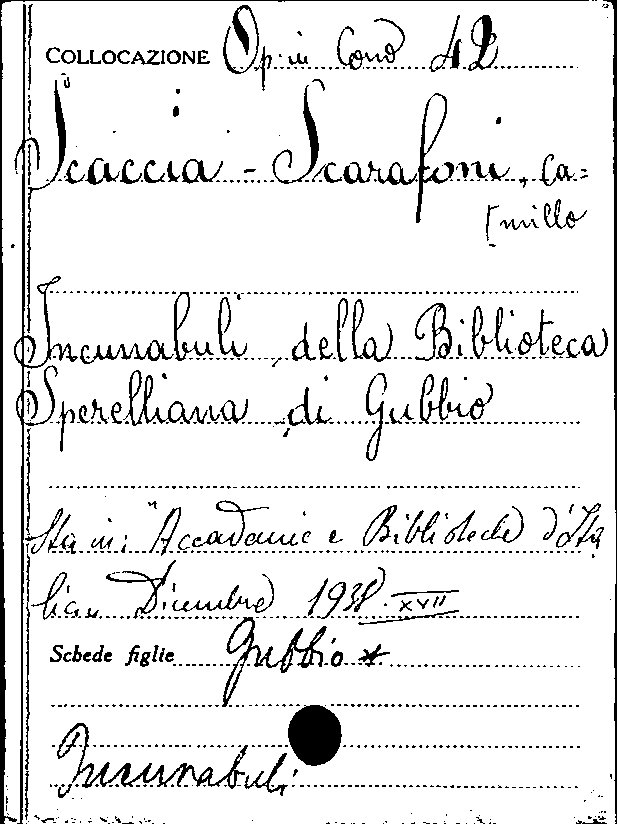 COLLOCAZIONE Op. in Cons 42
Scaccia - Scarafoni, Ca=
[millo
Incunabuli della Biblioteca
Sperelliana di Gubbio
Sta in: "Accademie e Biblioteche d'Ita
lia" Dicembre 1938. XVII
Schede figlie Gubbio *
Incunabuli